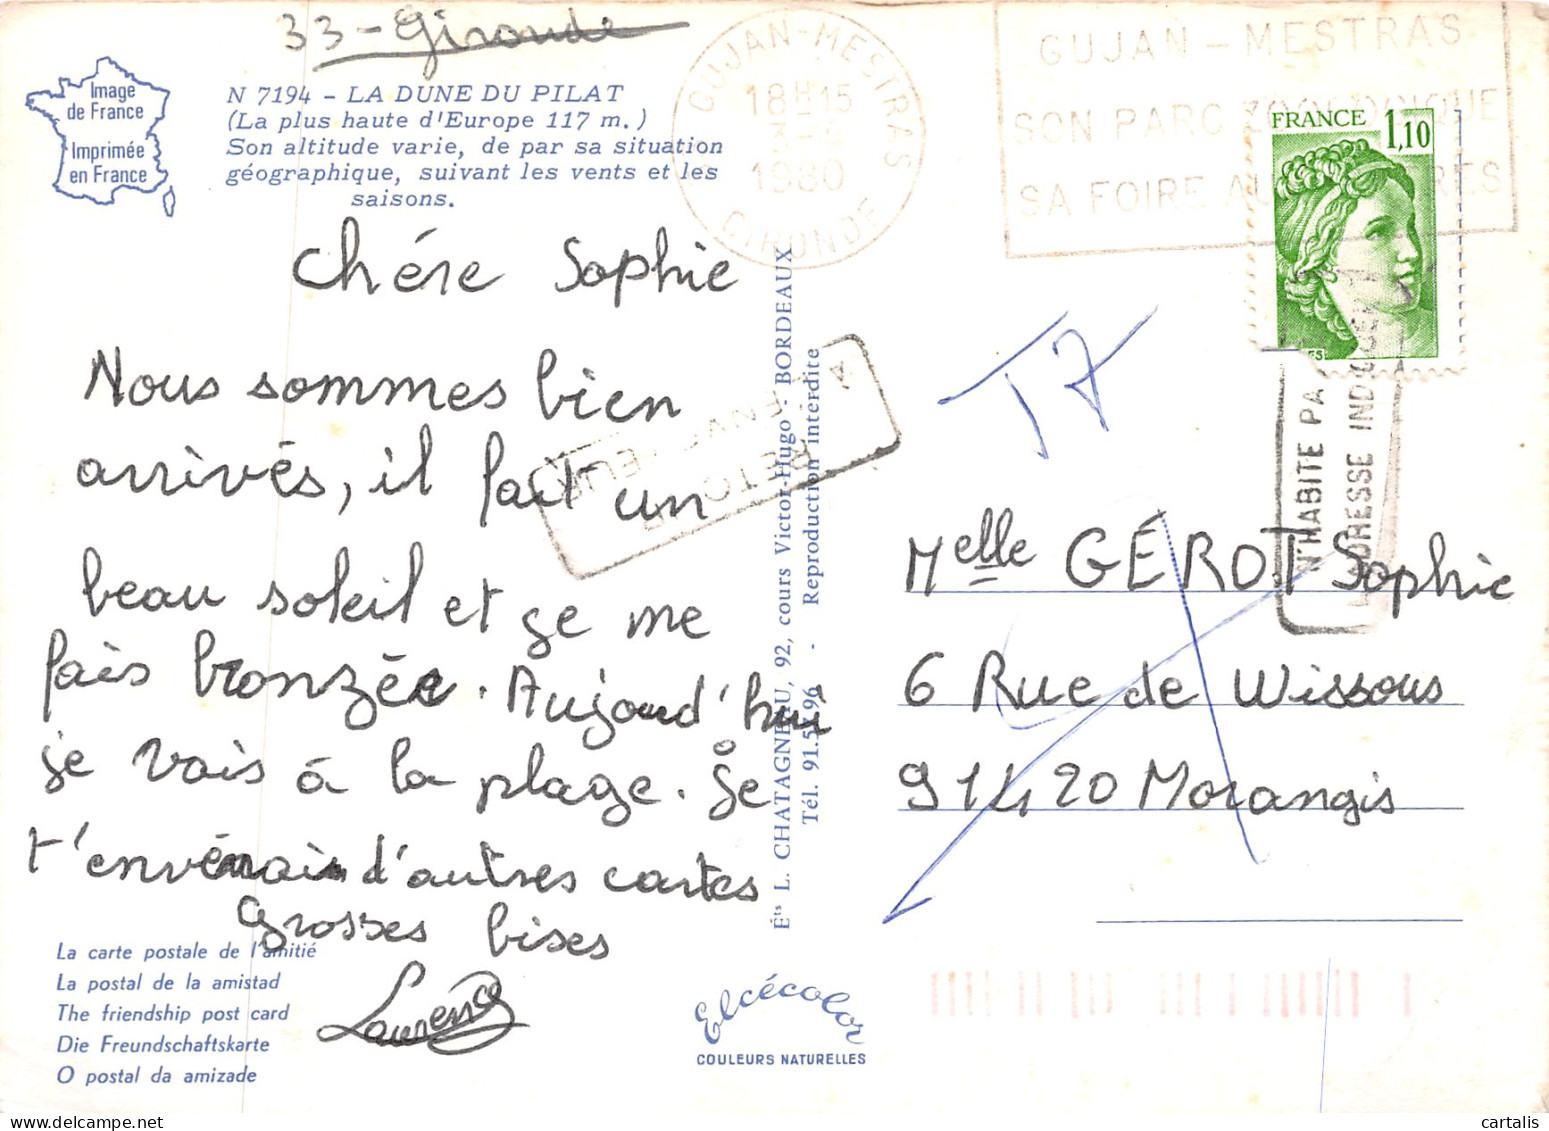 33 - Gironde
Image
de France
Imprimée
en France
N 7194 - LA DUNE DU PILAT
(La plus haute d'Europe 117 m.)
Son altitude varie, de par sa situation
géographique, suivant les vents et les
saisons.
GUJAN-MESTRAS
18H15
1980
GIRONDE
GUJAN - MESTRAS
SON PARC ZOOLOGIQUE
SA FOIRE AUX
FRANCE 1,10
Chére Sophie
Nous sommes bien
arrivés, il fait un
beau soleil et je me
fais bronzée. Aujourd'hui
je vais à la plage. Je
t'envérais d'autres cartes
Grosses bises
Laurence
RETOUR
A L'ENVOYEUR
T7
N'HABITE PAS
L'ADRESSE INDIQUEE
Melle GÉROT Sophie
6 Rue de Wissous
91420 Morangis
Éts L. CHATAGNEAU, 92, cours Victor-Hugo - BORDEAUX
Tél. 91.57.96 - Reproduction interdite
La carte postale de l'amitié
La postal de la amistad
The friendship post card
Die Freundschaftskarte
O postal da amizade
Elcécolor
COULEURS NATURELLES
cartalis